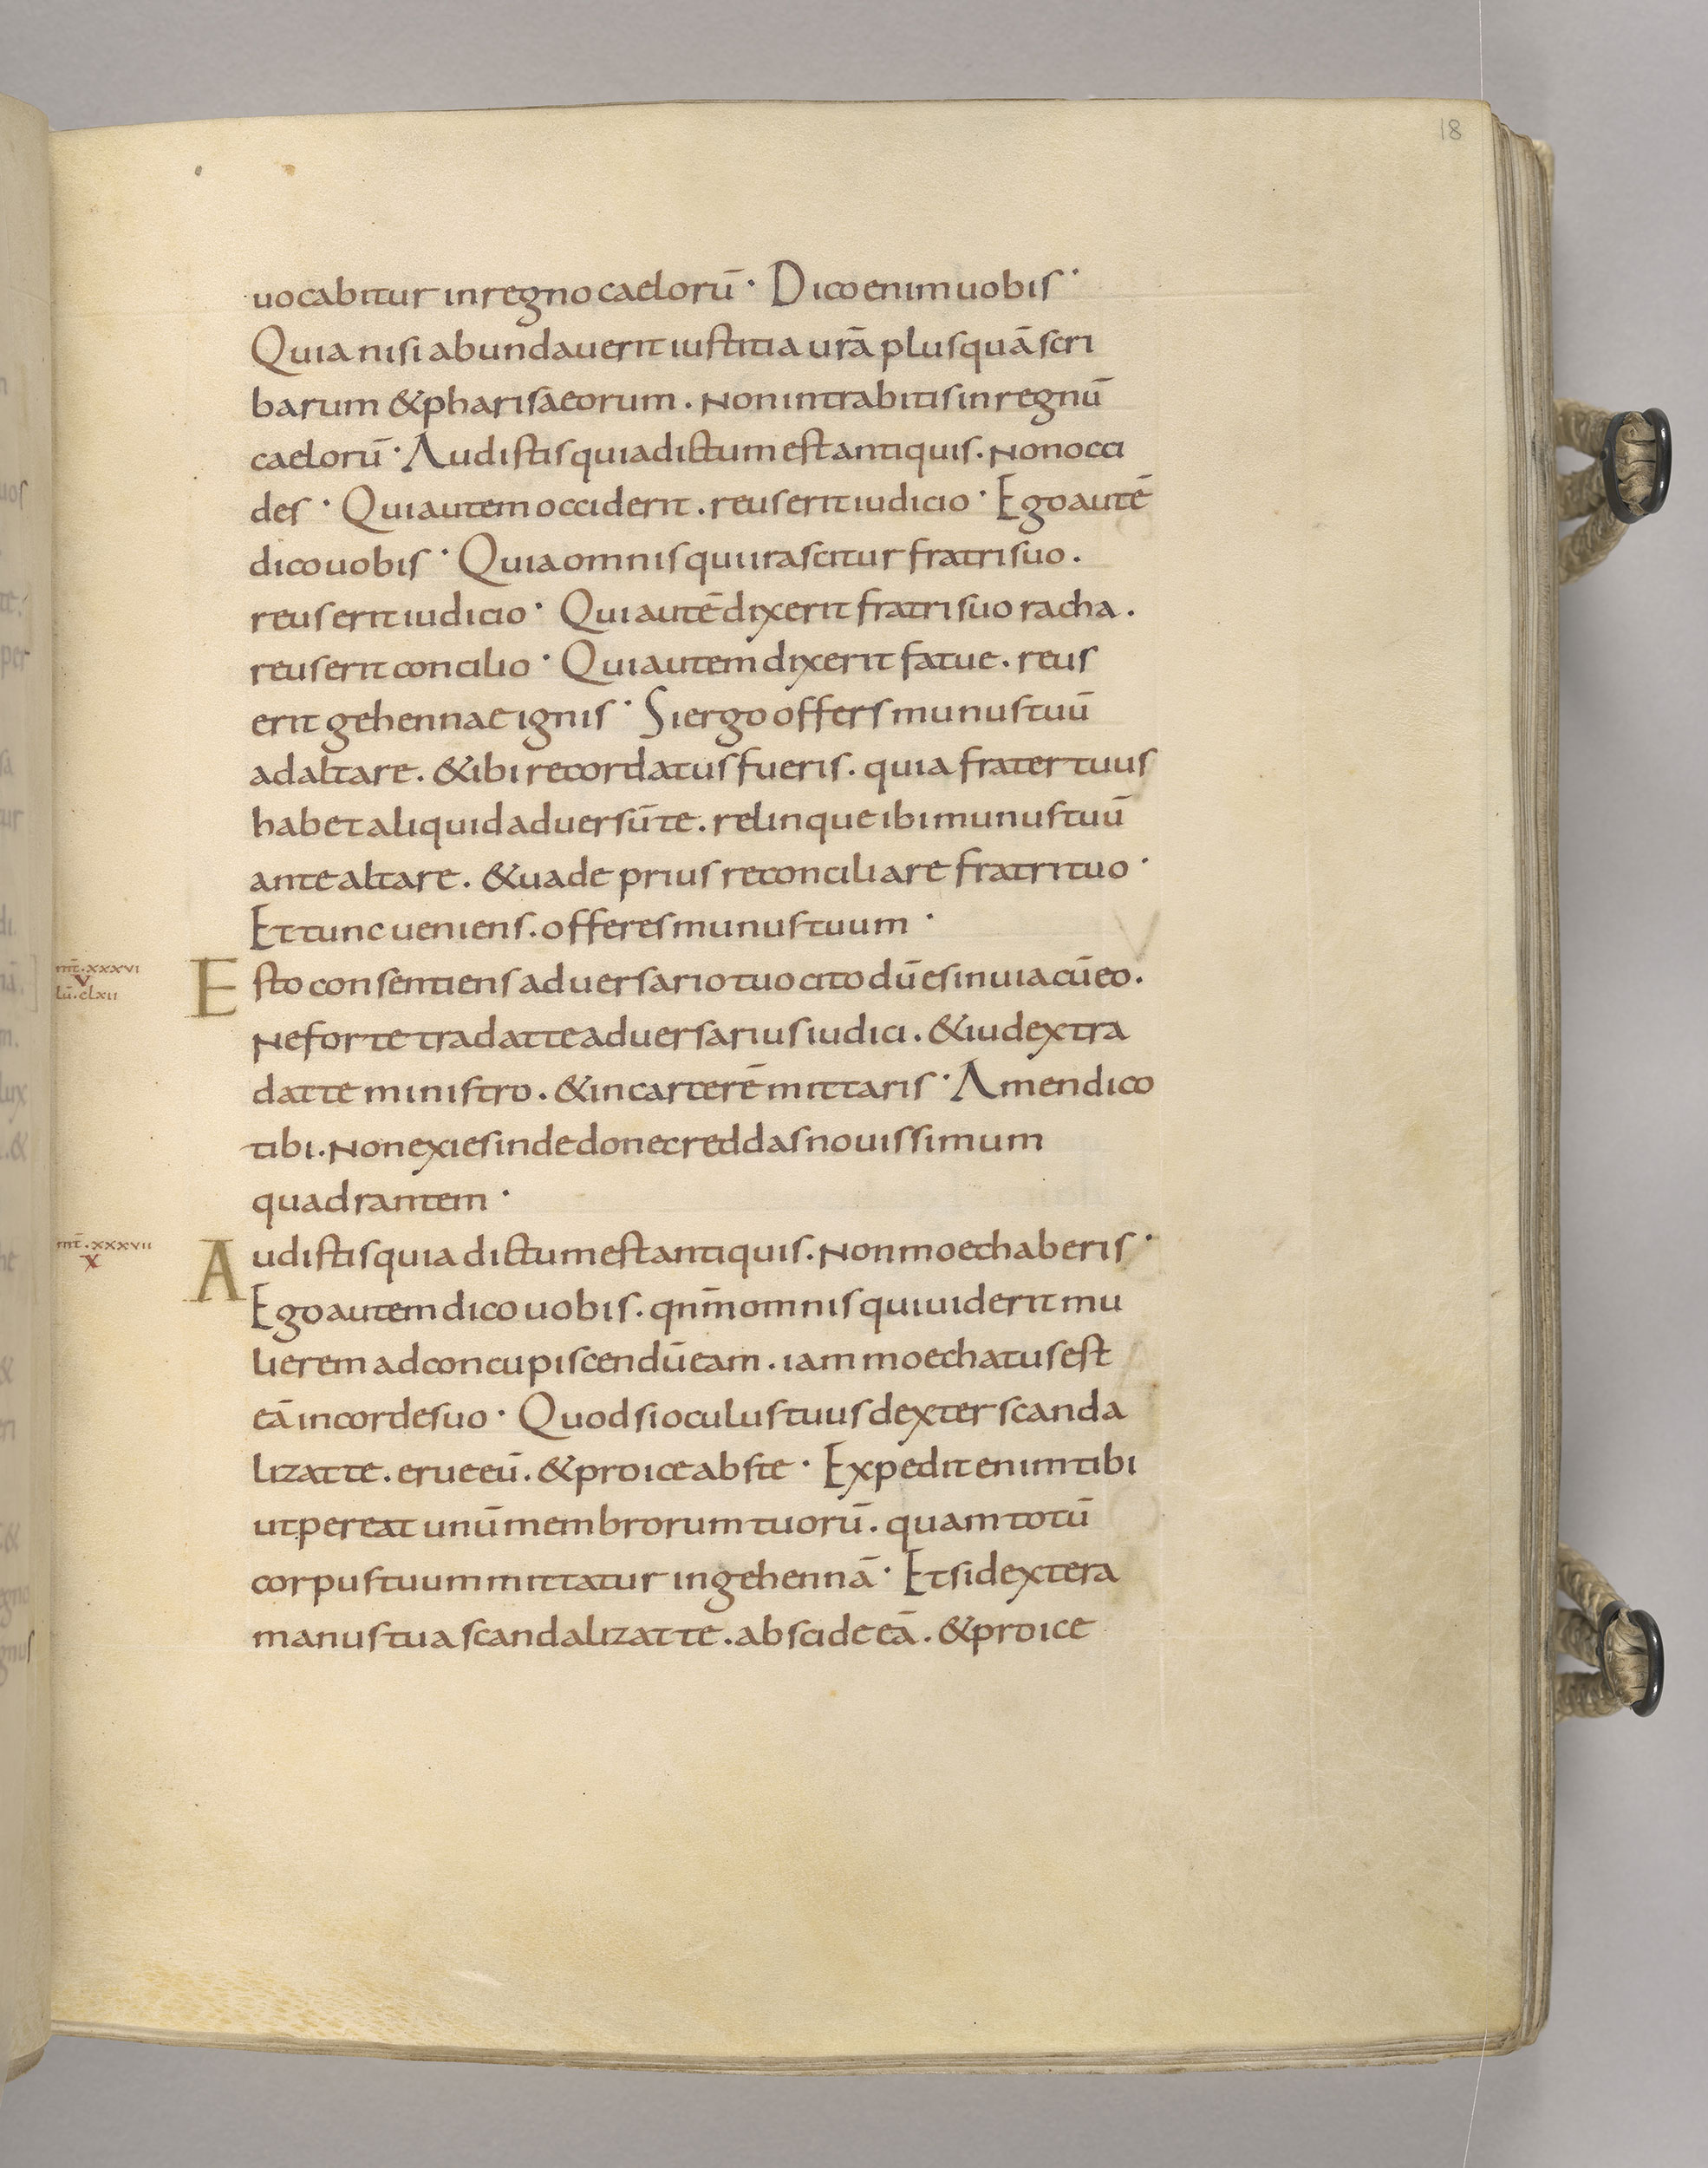 18
uocabitur inregnocaelorū· Dicoenimuobis·
Quianisiabundauerit iustitia urā plusquā scri
barum &pharisaeorum. Nonintrabitisinregnū
caelorū· Audistisquiadictumestantiquis. Nonocci
des· Quiautemocciderit. reuseritiudicio· Egoautē
dicouobis· Quiaomnisquiirascitur fratrisuo.
reuseritiudicio· Quiautēdixerit fratrisuo racha.
reuserit concilio· Quiautemdixerit fatue. reus
erit gehennaeignis· Siergooffersmunustuū
adaltare. &ibirecordatusfueris. quia fratertuus
habetaliquidaduersūte. relinqueibimunustuū
antealtare. &uade priusreconciliare fratrituo·
Ettuncueniens. offeresmunustuum·
mt̄.xxxvi
V
lū.clxii
Estoconsentiensaduersariotuocitodūesinuiacūeo.
Nefortetradatteaduersariusiudici. &iudextra
datte ministro. &incarcerē mittaris· Amendico
tibi. Nonexiesindedonecreddasnouissimum
quadrantem·
mt̄.xxxvii
X
Audistisquiadictumestantiquis. Nonmoechaberis·
Egoautemdicouobis. qnm̄omnisquiuiderit mu
lierem adconcupiscendūeam. iam moechatusest
eāincordesuo· Quodsioculustuusdexterscanda
lizatte. erueeū. &proiceabste· Expeditenimtibi
utpereat unūmembrorumtuorū. quamtotū
corpustuummittatur ingehennā· Etsidextera
manustuascandalizatte. abscideeā. &proice